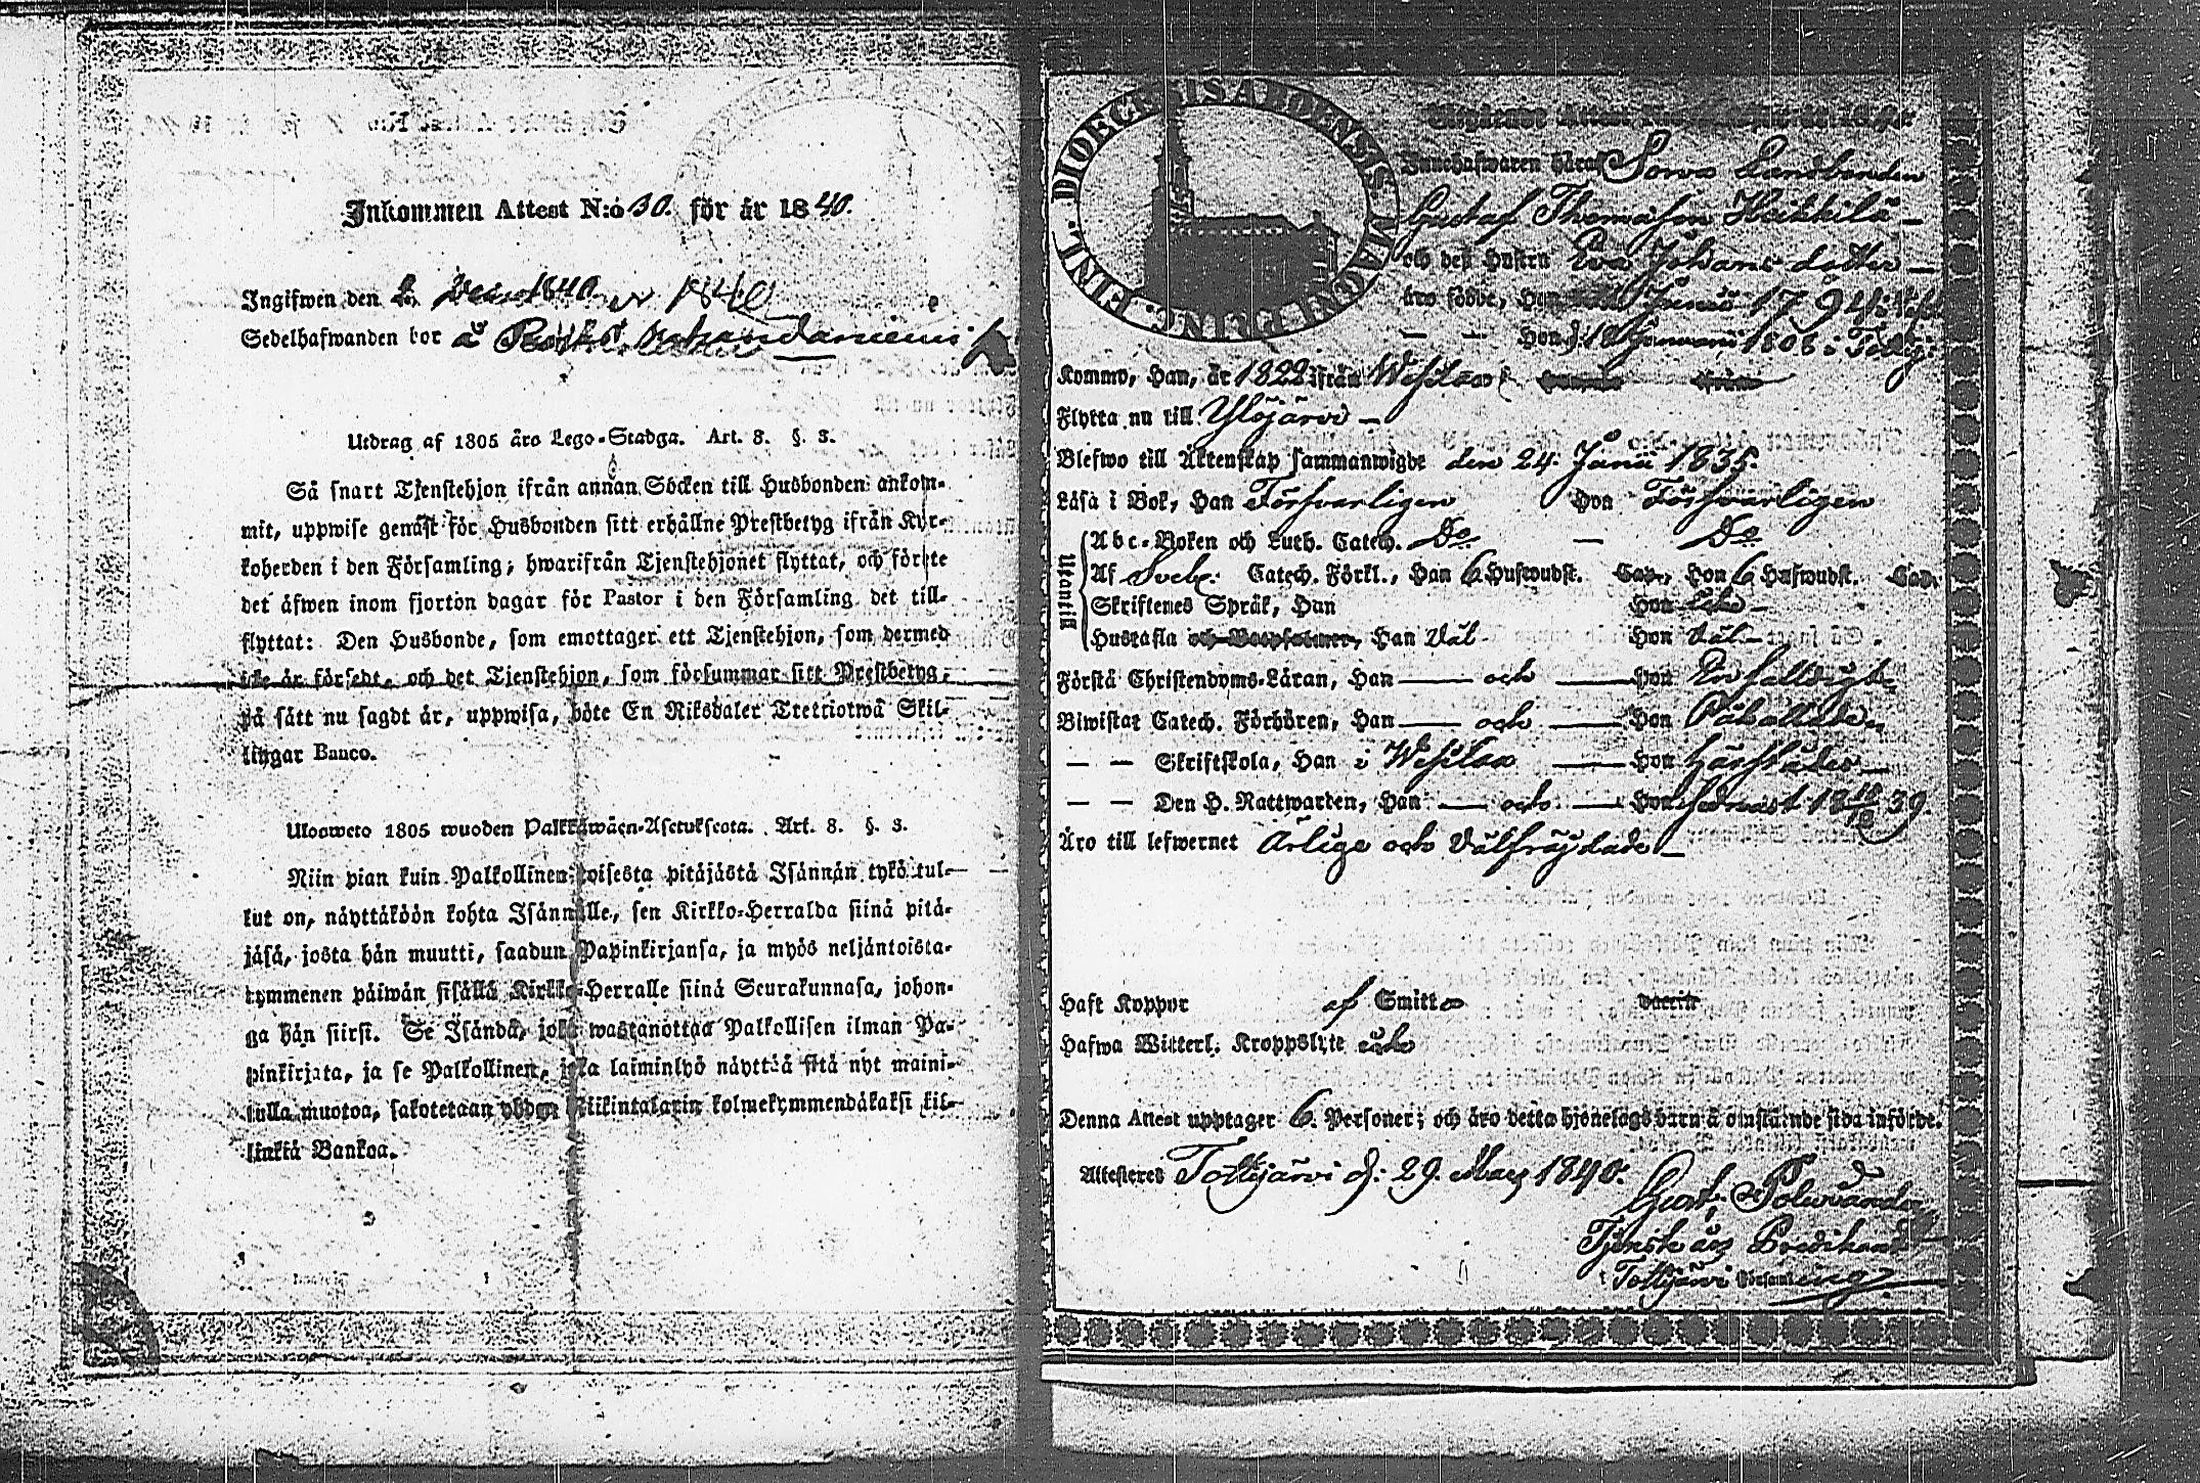 Inkommen Attest N:o 30. för år 1840.
Ingifwen den 1840
Sedelhafwanden bor å
Utdrag af 1805 års Lego-Stadga. Art. 8. §. 3.
Så snart Tjenstehjon ifrån annan Söcken till Husbonden ankom-
mit, uppwise genast för Husbonden sitt erhållne Prestbetyg ifrån Kyr-
koherden i den Församling; hwarifrån Tjenstehjonet flyttat, och förete
det äfwen inom fjorton dagar för Pastor i den Församling det till-
flyttat: Den Husbonde, som emottager ett Tjenstehjon, som dermed
icke är försedt, och det Tjenstehjon, som försummar sitt Prestbetyg,
på sätt nu sagdt är, uppwisa, böte En Riksdaler Trettiotwå Skil-
lingar Banco.
Uloswето 1805 wuoden Palkkawäen-Asetuksesta. Art. 8. §. 3.
Niin pian kuin Palkollinen toisesta pitäjästä Isännän tykö tul-
lut on, näyttäköön kohta Isännälle, sen Kirkko-Herralda siinä pitä-
jäsä, josta hän muutti, saadun Papinkirjansa, ja myös neljäntoista-
kymmenen päiwän sisällä Kirkko-Herralle siinä Seurakunnasa, johon-
ga hän siirsi. Se Isändä, joka wastanottaa Palkollisen ilman Pa-
pinkirjata, ja se Palkollinen, joka laiminlyö näyttää sitä nyt maini-
tulla muotoa, sakotetaan yhden Riikintalarin kolmekymmendäkaksi kil-
linkiä Bankoa.
FINL. DIOECESIS ABOENSIS MAGNI PRINC.
Innehafwaren häraf Sorva Landbonden
Gustaf Thomasson Heikkilä –
och deß Hustru Eva Johans dotter –
äro födde, Han Junii 1794 i
— — Hon d. 1 Januarii 1808 i
Kommo, Han, år 1822 ifrån Wesilax
Flytta nu till Ylöjärvi –
Blefwo till Äktenskap sammanwigde den 24. Junii 1835.
Läsa i Bok, Han Försvarligen Hon Försvarligen
Utantill
Abc-Boken och Luth. Catech. Do — Do
Af Sveb: Catech. Förkl., Han 6 Hufwudst. Cap., Hon 6 Hufwudst. Cap.
Skriftenes Språk, Han Hon
Hustafla och Botpsalmer, Han Väl Hon Väl –
Förstå Christendoms-Läran, Han — och — Hon Enfaldigt
Biwistat Catech. Förhören, Han — och — Hon
— — Skriftskola, Han i Wesilax — Hon härstädes –
— — Den H. Nattwarden, Han — och — Hon sednast 18 39.
Äro till lefwernet Ärlige och Välfräjdade –
Haft Koppor af Smitta
Hafwa Witterl. Kroppslyte icke
Denna Attest upptager 6. Personer; och äro detta hjonelags barn å omstående sida införde.
Attesteres Tottijärvi d: 29. Marz 1840.
Gust. Polvianders
Tjenst. ärs Predikant
Tottijärvi